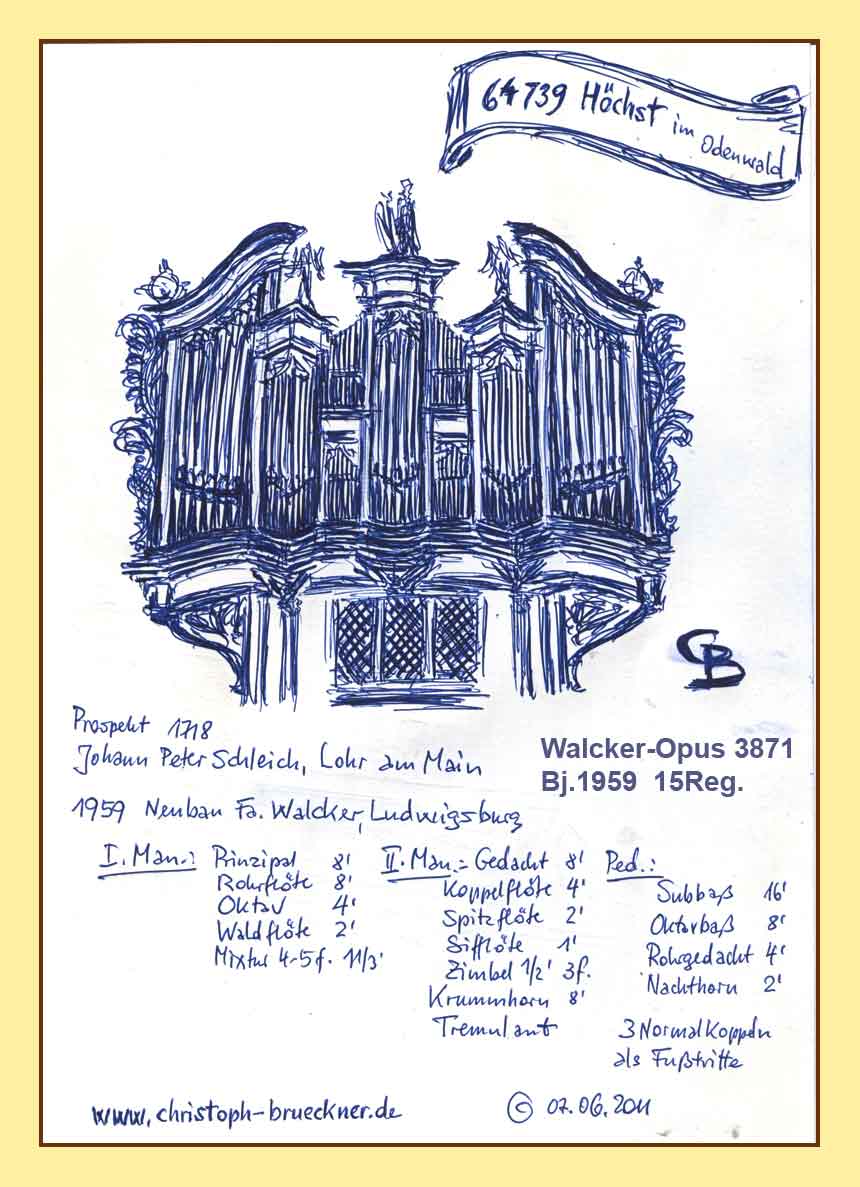 64739 Höchst im Odenwald
CB
Prospekt 1718
Johann Peter Schleich, Lohr am Main
Walcker-Opus 3871
Bj.1959 15Reg.
1959 Neubau Fa. Walcker, Ludwigsburg
I. Man.:
Prinzipal 8'
Rohrflöte 8'
Oktav 4'
Waldflöte 2'
Mixtur 4-5f. 1 1/3'
II. Man.: Gedackt 8'
Koppelflöte 4'
Spitzflöte 2'
Sifflöte 1'
Zimbel 1/2' 3f.
Krummhorn 8'
Tremulant
Ped.:
Subbaß 16'
Oktavbaß 8'
Rohrgedackt 4'
Nachthorn 2'
3 Normalkoppeln
als Fußtritte
www.christoph-brueckner.de
© 07.06.2011